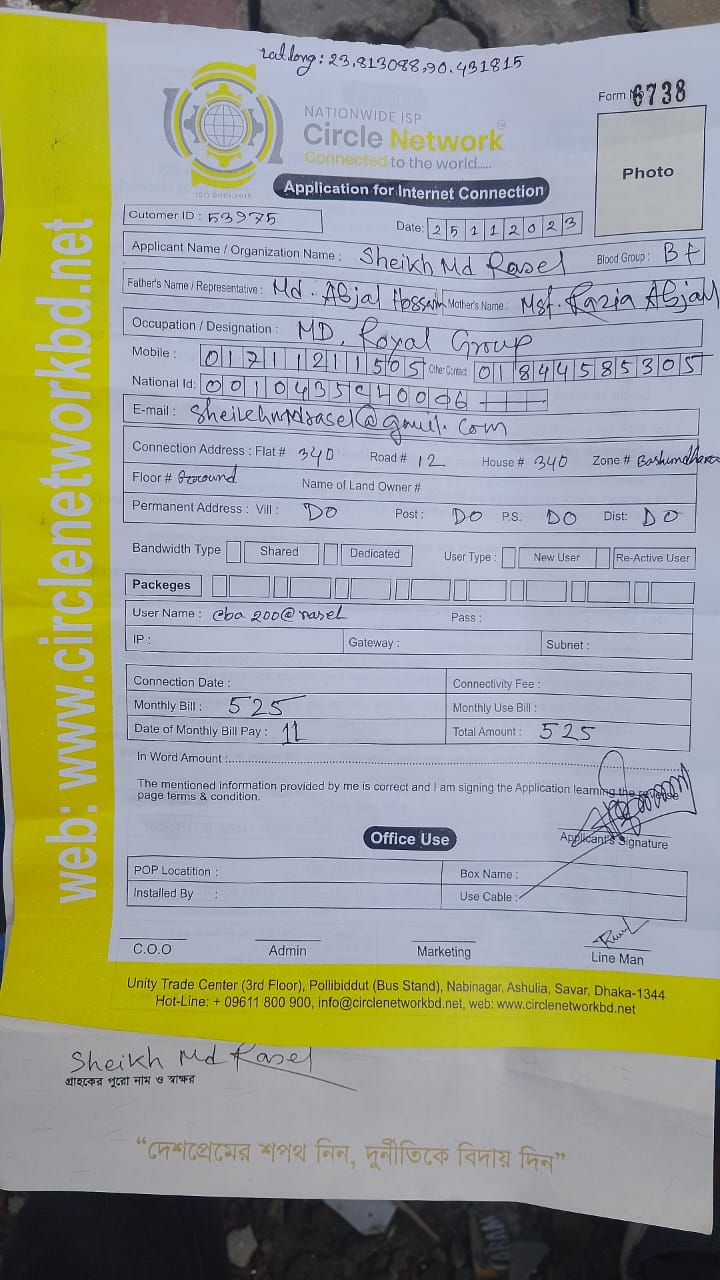 Lat long : 23.813088,90.431815
NATIONWIDE ISP
Circle Network
Connected to the world.....
ISO 9001:2015
Form 6738
Photo
Application for Internet Connection
Cutomer ID : 53975
Date: 25112023
Applicant Name / Organization Name : Sheikh Md Rasel Blood Group : B+
Father's Name / Representative : Md. Abjal Hossain Mother's Name : Mst. Razia Abjal
Occupation / Designation : MD, Royal Group
Mobile : 01711211505 Other Contact : 01844585305
National Id:
E-mail : @gmail.com
Connection Address : Flat # 340 Road # 12 House # 340 Zone # Bashundhara
Floor # Ground Name of Land Owner #
Permanent Address : Vill : DO Post : DO P.S. DO Dist: DO
Bandwidth Type Shared Dedicated User Type : New User Re-Active User
Packeges
User Name : cba200@rasel Pass :
IP : Gateway : Subnet :
Connection Date : Connectivity Fee :
Monthly Bill : 525 Monthly Use Bill :
Date of Monthly Bill Pay : 11 Total Amount : 525
In Word Amount :
The mentioned information provided by me is correct and I am signing the Application learning the
page terms & condition.
Applicant's Signature
Office Use
POP Locatition : Box Name :
Installed By : Use Cable :
C.O.O Admin Marketing Line Man
Unity Trade Center (3rd Floor), Pollibiddut (Bus Stand), Nabinagar, Ashulia, Savar, Dhaka-1344
Hot-Line: + 09611 800 900, info@circlenetworkbd.net, web: www.circlenetworkbd.net
web: www.circlenetworkbd.net
Sheikh Md Rasel
গ্রাহকের পুরো নাম ও স্বাক্ষর
“দেশপ্রেমের শপথ নিন, দুর্নীতিকে বিদায় দিন”